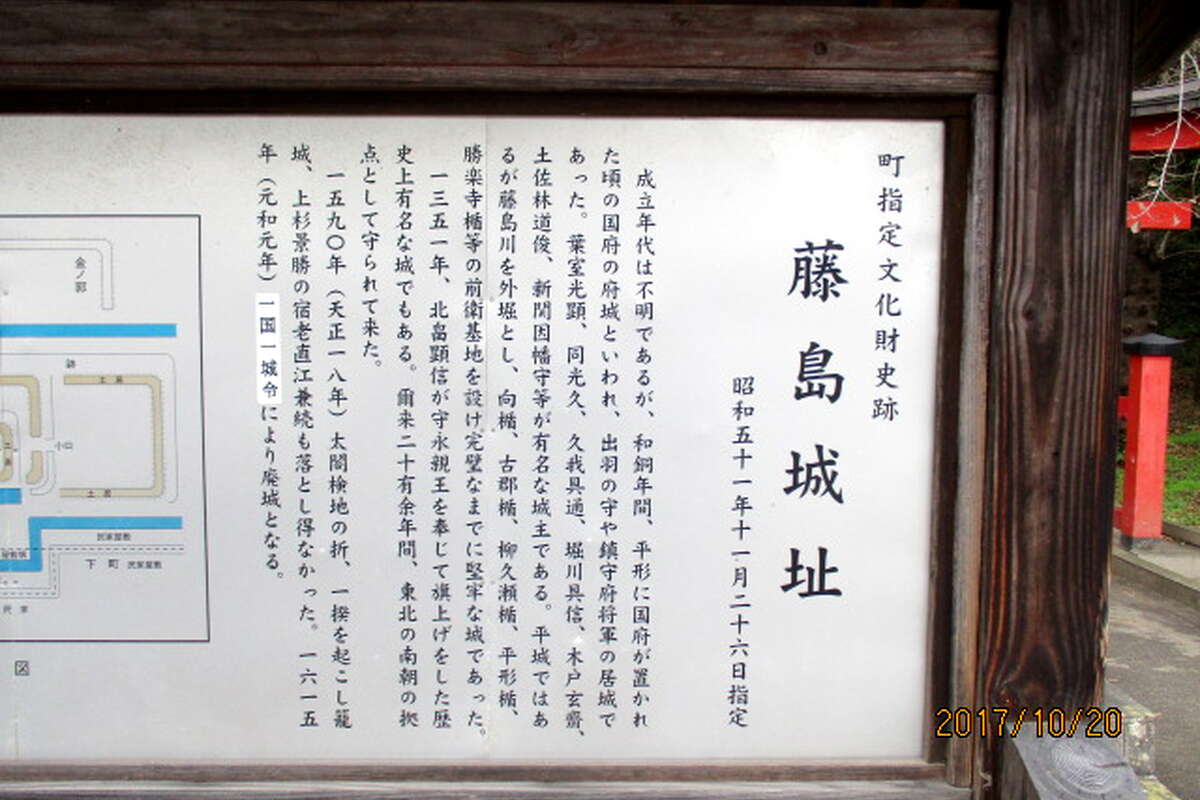 町指定文化財史跡
藤島城址
昭和五十一年十一月二十六日指定
成立年代は不明であるが、和銅年間、平形に国府が置かれ
た頃の国府の府城といわれ、出羽の守や鎮守府将軍の居城で
あった。葉室光顕、同光久、久我具通、堀川具信、木戸玄齋、
土佐林道俊、新関因幡守等が有名な城主である。平城ではあ
るが藤島川を外堀とし、向楯、古郡楯、柳久瀬楯、平形楯、
勝楽寺楯等の前衛基地を設け完璧なまでに堅牢な城であった。
一三五一年、北畠顕信が守永親王を奉じて旗上げをした歴
史上有名な城でもある。爾来二十有余年間、東北の南朝の拠
点として守られて来た。
一五九〇年（天正一八年）太閤検地の折、一揆を起こし籠
城、上杉景勝の宿老直江兼続も落とし得なかった。一六一五
年（元和元年）一国一城令により廃城となる。
金ノ郭
跡
土居
小口
二
土居
民家屋敷
下町
民家屋敷
図
2017/10/20